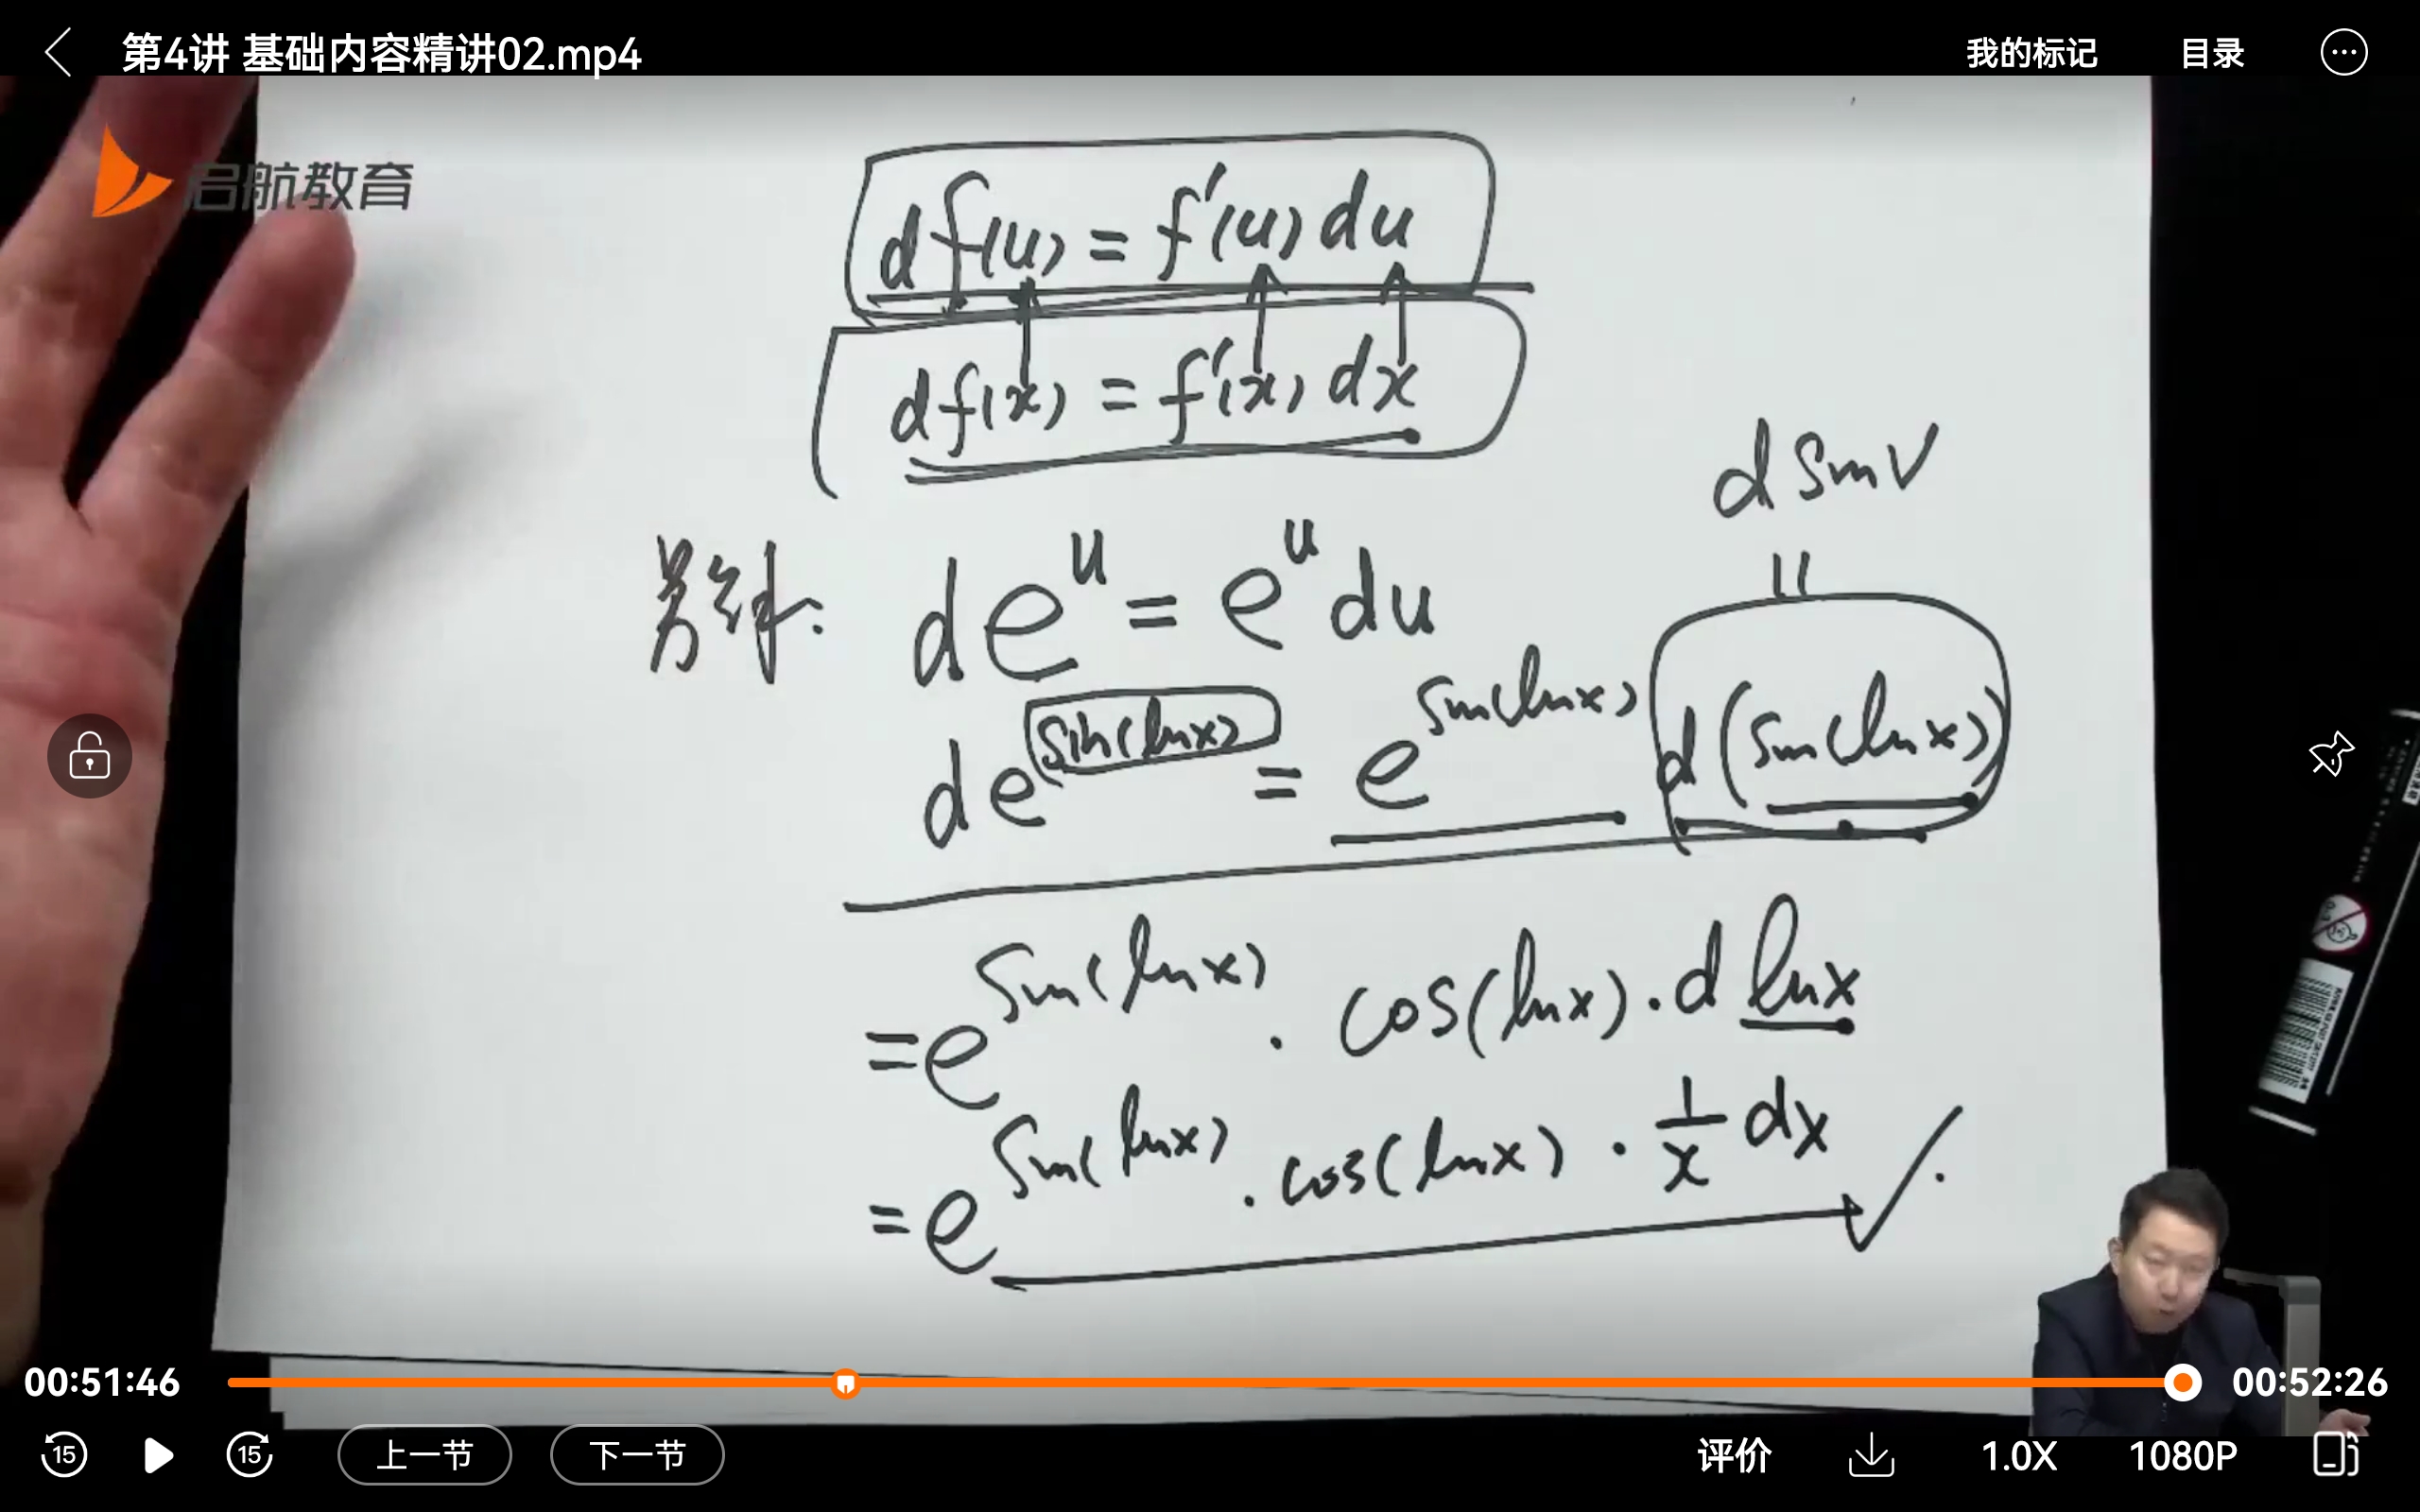 第4讲 基础内容精讲02.mp4
我的标记
目录
启航教育
df(u) = f'(u) du
df(x) = f'(x) dx
d sin v
=
de^u = e^u du
de^sin(lnx) = e^sin(lnx) d(sin(lnx))
= e^sin(lnx) · cos(lnx) · d lnx
= e^sin(lnx) · cos(lnx) · 1/x dx
00:51:46
00:52:26
15
15
上一节
下一节
评价
1.0X
1080P